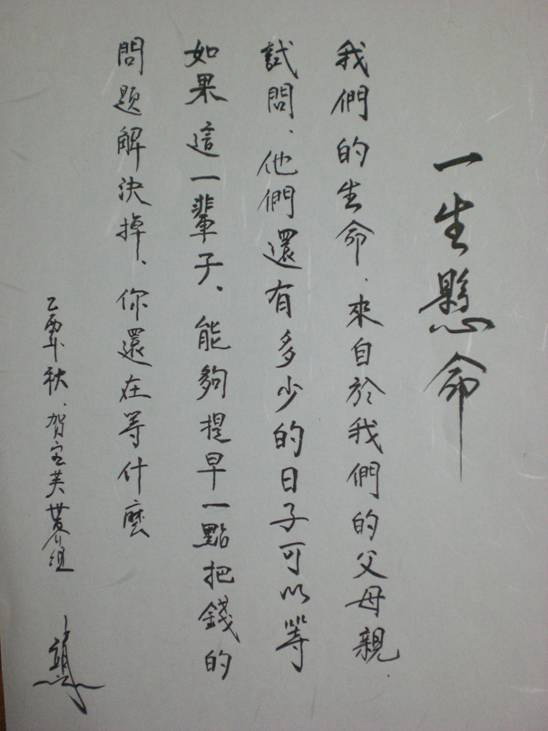 一生懸命
我們的生命.來自於我們的父母親.
試問、他們還有多少的日子可以等
如果這一輩子、能夠提早一點把錢的
問題解決掉、你還在等什麼
秋.賀